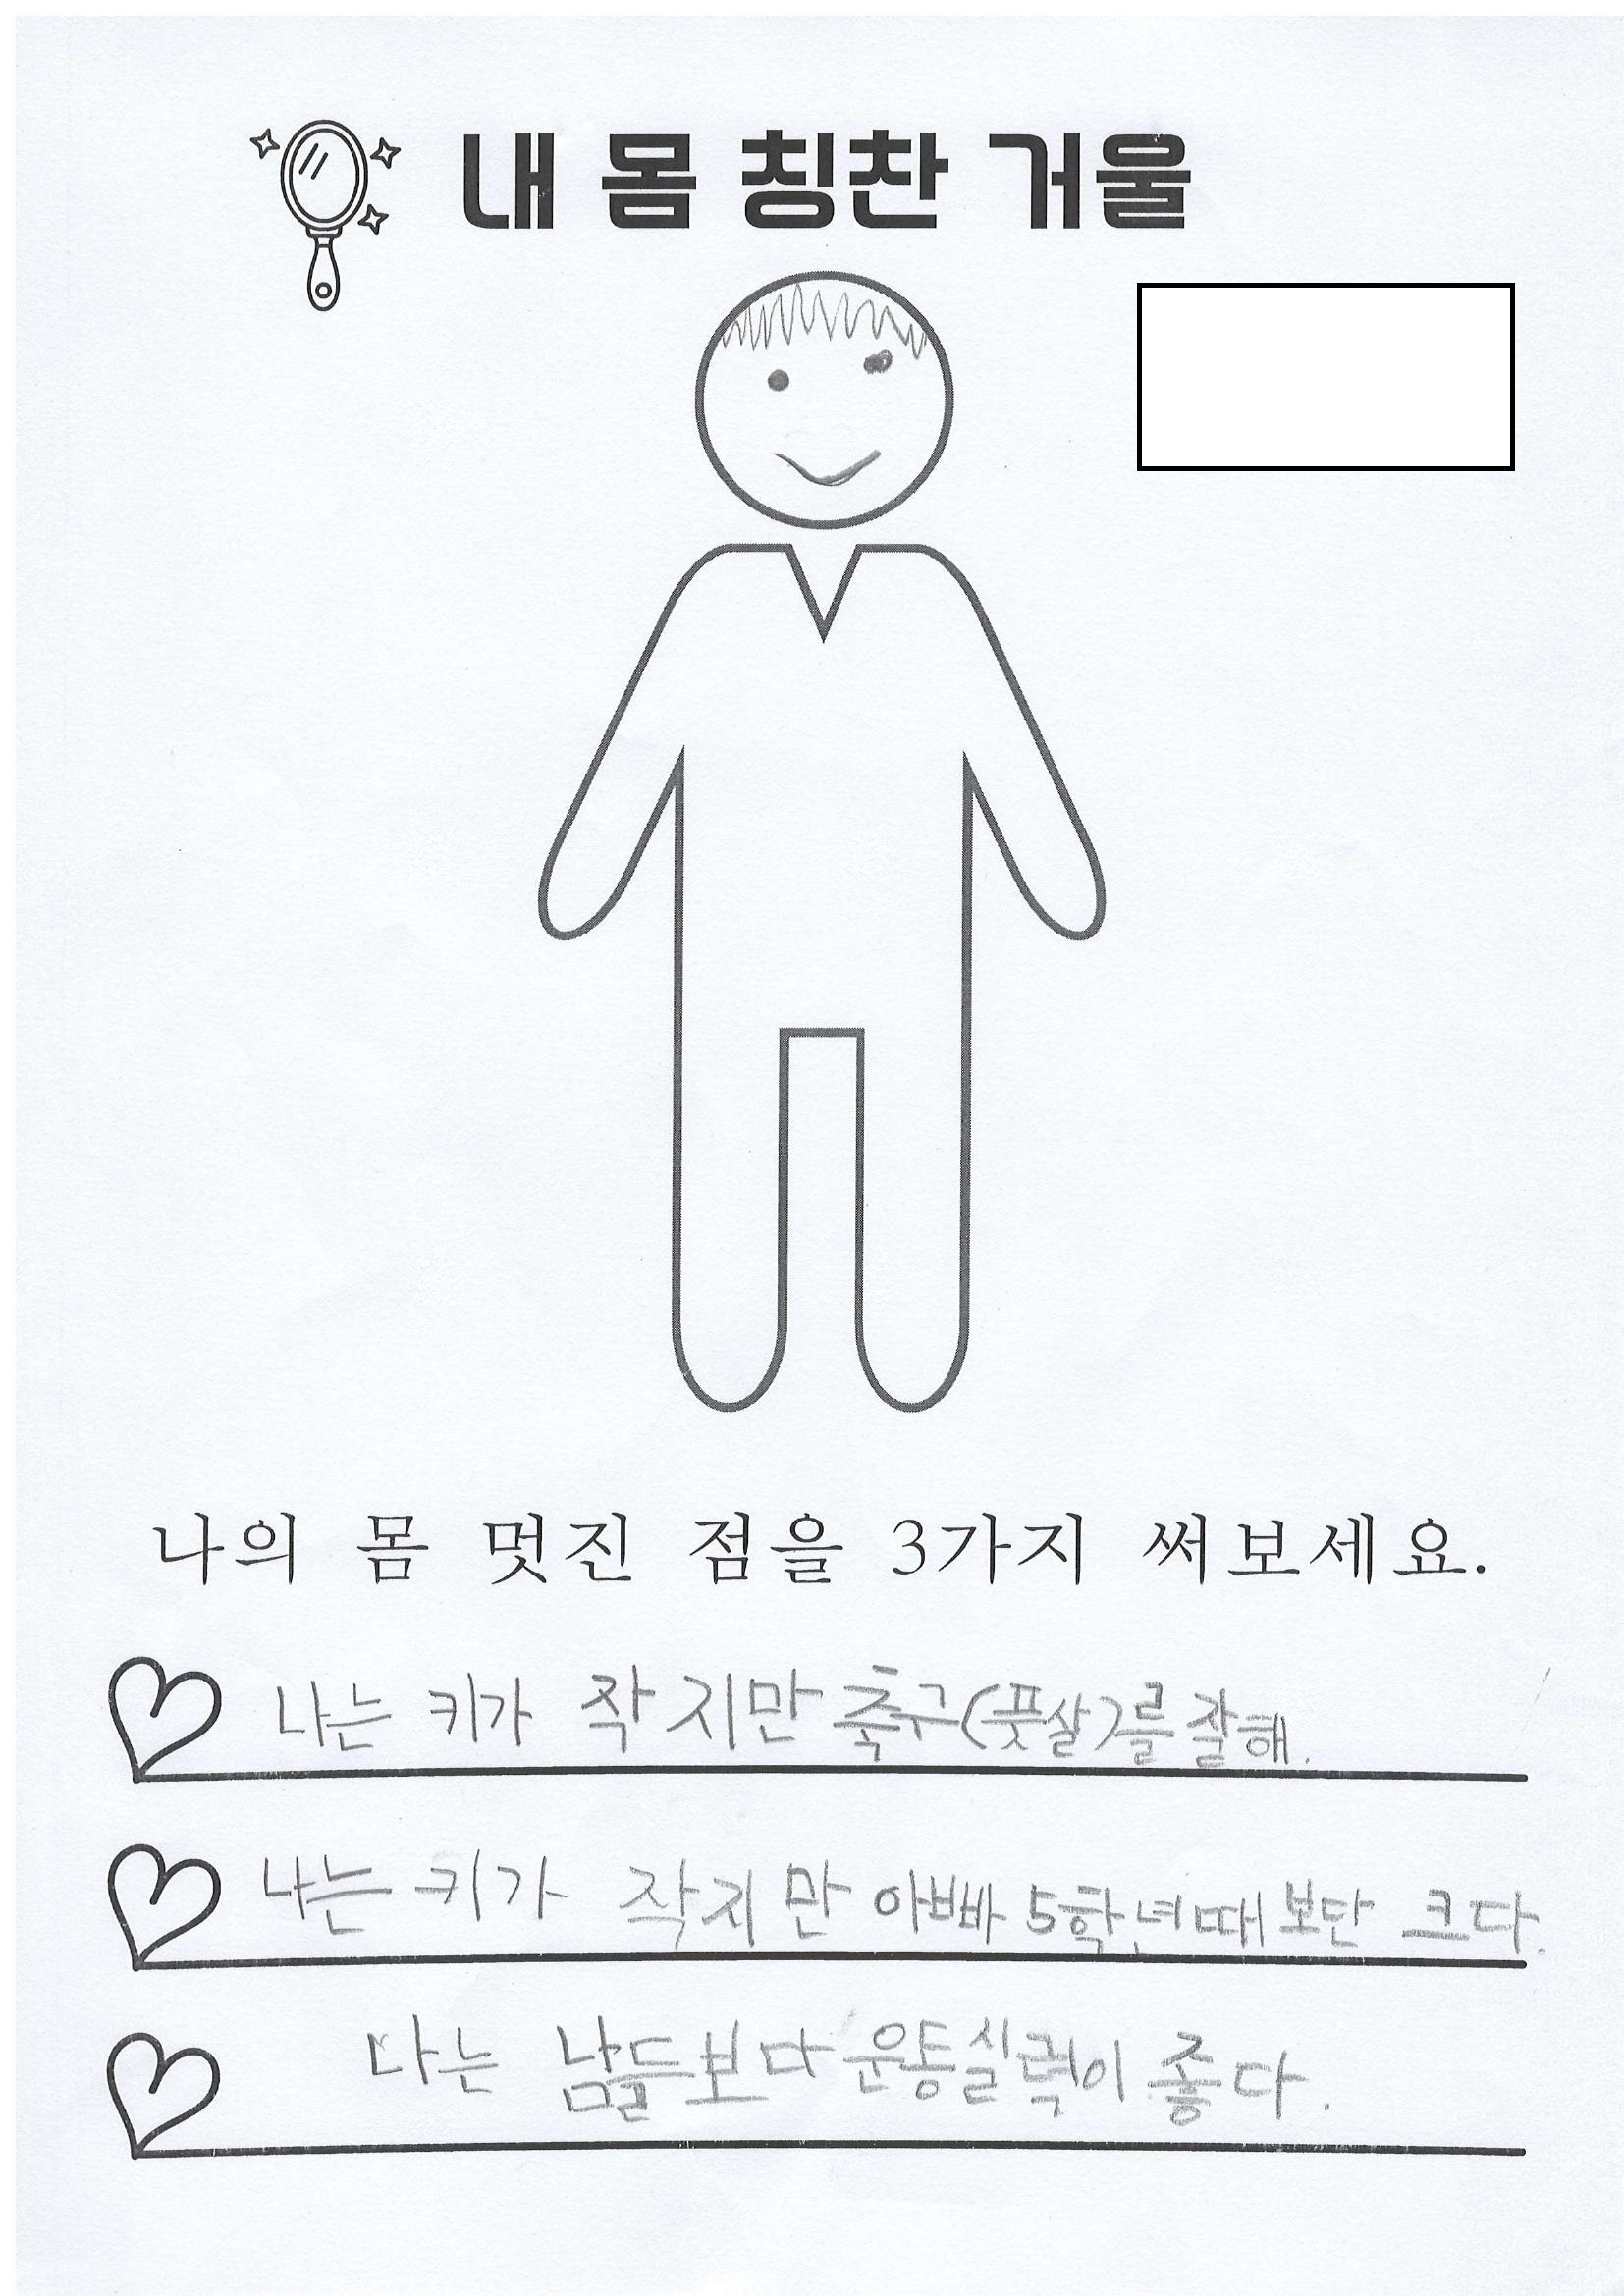 내 몸 칭찬 거울
나의 몸 멋진 점을 3가지 써보세요.
나는 키가 작지만 축구(풋살)를 잘해.
나는 키가 작지만 아빠 5학년때보단 크다.
나는 남들보다 운동실력이 좋다.